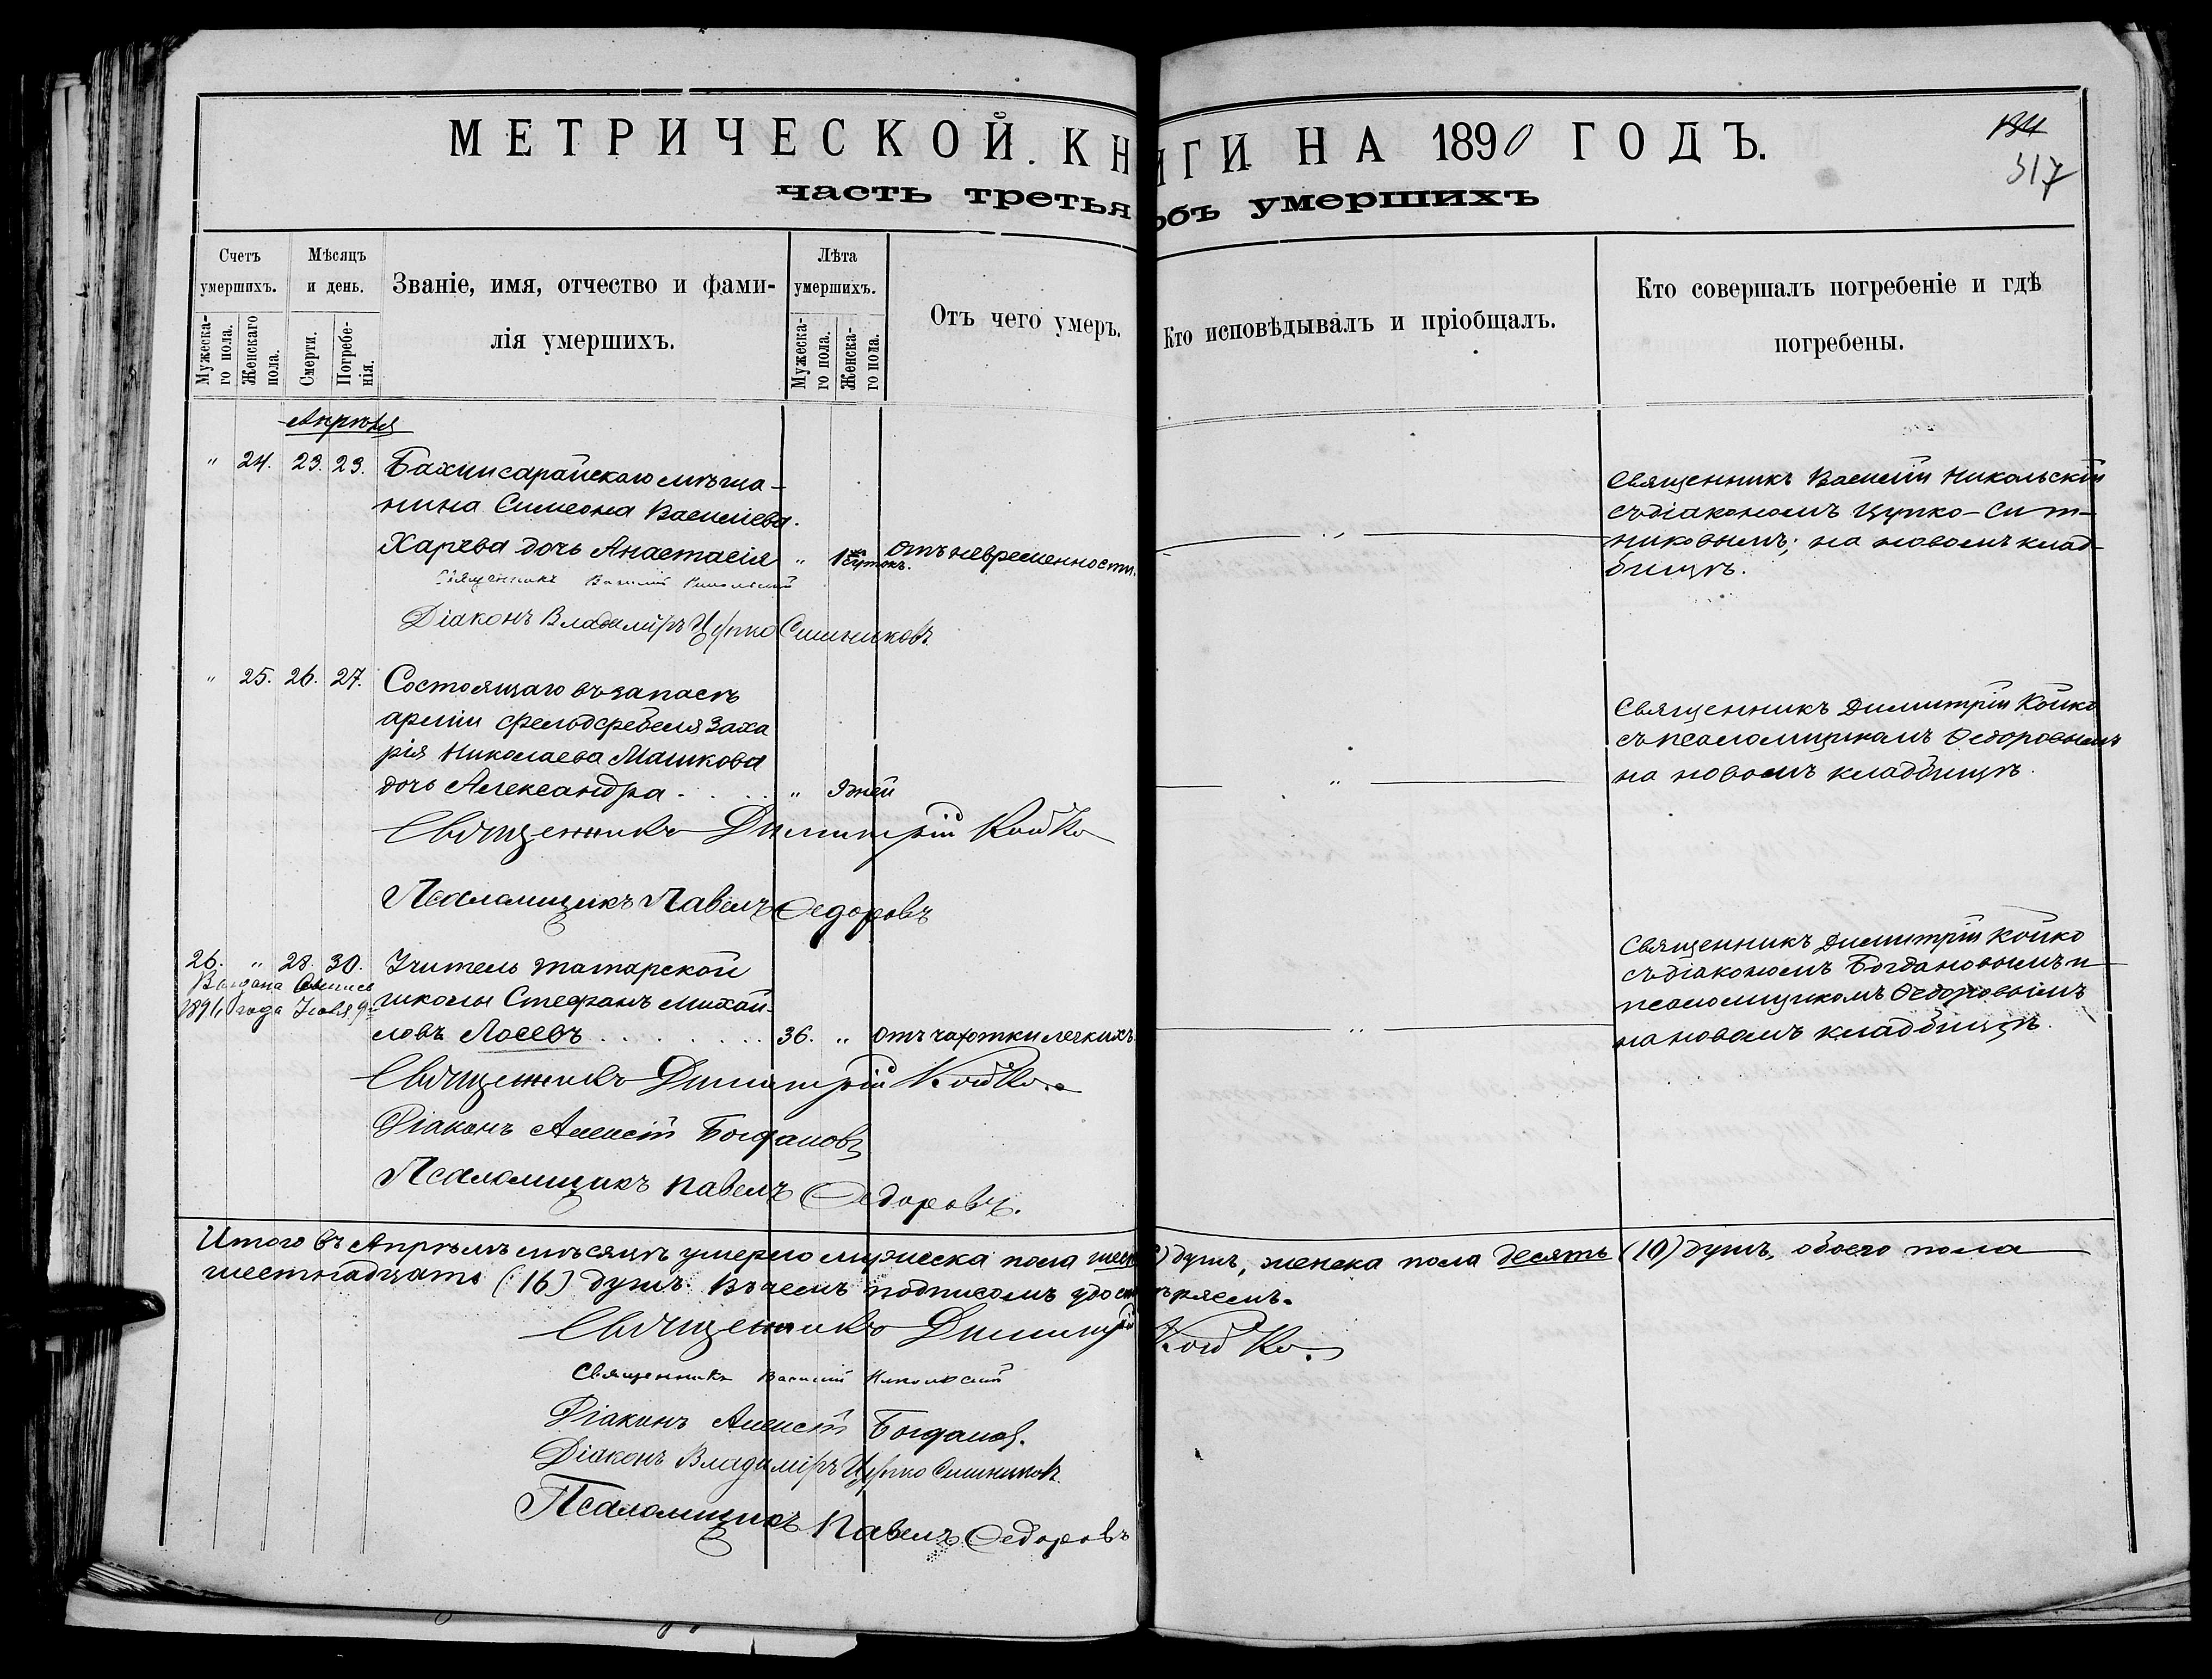 МЕТРИЧЕСКОЙ КНИГИ НА 1890 ГОДЪ.
317
часть третья объ умершихъ
Счетъ умершихъ.
Мужескаго пола.
Женскаго пола.
Мѣсяцъ и день.
Смерти.
Погребенія.
Званіе, имя, отчество и фами-
лія умершихъ.
Лѣта умершихъ.
Мужескаго пола.
Женскаго пола.
Отъ чего умеръ.
Кто исповѣдывалъ и пріобщалъ.
Кто совершалъ погребеніе и гдѣ
погребены.
Апрѣля
" 24. 23. 23. Бахчисарайскаго мѣща-
нина Симеона Васильева
Харева дочь Анастасія " 1 сутокъ. отъ невременности.
Священникъ Василій Никольскій
Діаконъ Владиміръ Цупко Ситниковъ
Священникъ Василій Никольскій
съ діакономъ Цупко-Сит-
никовымъ; на новомъ клад-
бищѣ.
" 25. 26. 27. Состоящаго въ запасѣ
арміи фельдфебеля Заха
рія Николаева Машкова
дочь Александра " 9 дней
Священникъ Димитрій Койко
Псаломщикъ Павелъ Ѳедоровъ
Священникъ Димитрій Койко
съ псаломщикомъ Ѳедоровымъ
на новомъ кладбищѣ.
26. " 28. 30. Учитель татарской
школы Стефанъ Михай-
ловъ Лосевъ 36. " отъ чахотки легкихъ
Выдана
1891 года Іюля 9
Священникъ Димитрій Койко.
Діаконъ Алексій Богдановъ
Псаломщикъ Павелъ Ѳедоровъ.
Священникъ Димитрій Койко
съ діакономъ Богдановымъ и
псаломщикомъ Ѳедоровымъ
на новомъ кладбищѣ.
Итого въ Апрѣлѣ мѣсяцѣ умерло мужеска пола душъ, женска пола десять (10) душъ, обоего пола
шестнадцать (16) душъ. Въ чемъ подписомъ удостовѣряемъ.
Священникъ Димитрій Койко.
Священникъ Василій Никольскій
Діаконъ Алексій Богдановъ.
Діаконъ Владиміръ Цупко Ситниковъ
Псаломщикъ Павелъ Ѳедоровъ